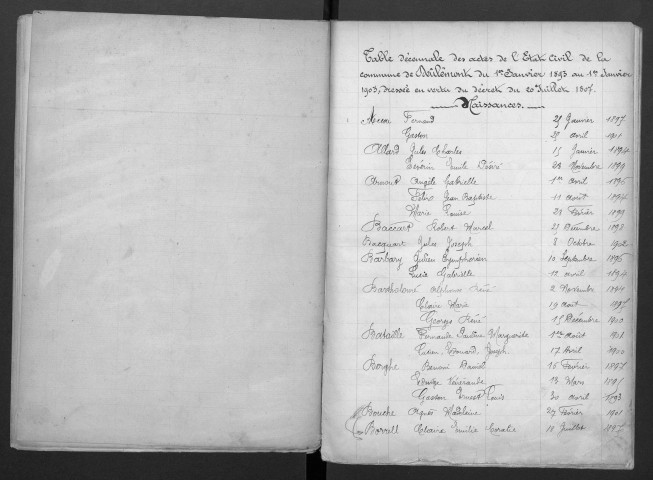 Table décennale des actes de l'Etat Civil de la
commune de du 1er Janvier 1893 au 1er Janvier
1903, dressée en vertu du décret du 20 Juillet 1807.
Naissances.
Fernand 25 Janvier 1897
Gaston 25 avril 1901
Allard Jules Charles 15 Janvier 1894
Séverin Emile Désiré 28 Novembre 1899
Angèle Gabrielle 1er avril 1895
Jean Baptiste 11 août 1894
Marie Louise 28 Février 1899
Baccart Robert Marcel 25 Décembre 1898
Bacquart Jules Joseph 8 Octobre 1902
Barbary Julien Symphorien 10 Septembre 1895
Lucie Gabrielle 12 avril 1894
Bartholomé Alphonse René 2 Novembre 1894
Claire Marie 19 août 1897
Georges René 15 Décembre 1900
Bataille Fernande Pauline Marguerite 1er août 1901
Edouard Joseph 17 Avril 1900
Borghe Daniel 16 Février 1897
13 Mars
Gaston Ernest Louis 30 avril 1893
Bouche Agnès Madeleine 27 Février 1901
Borrell Claire Emilie Coralie 10 Juillet